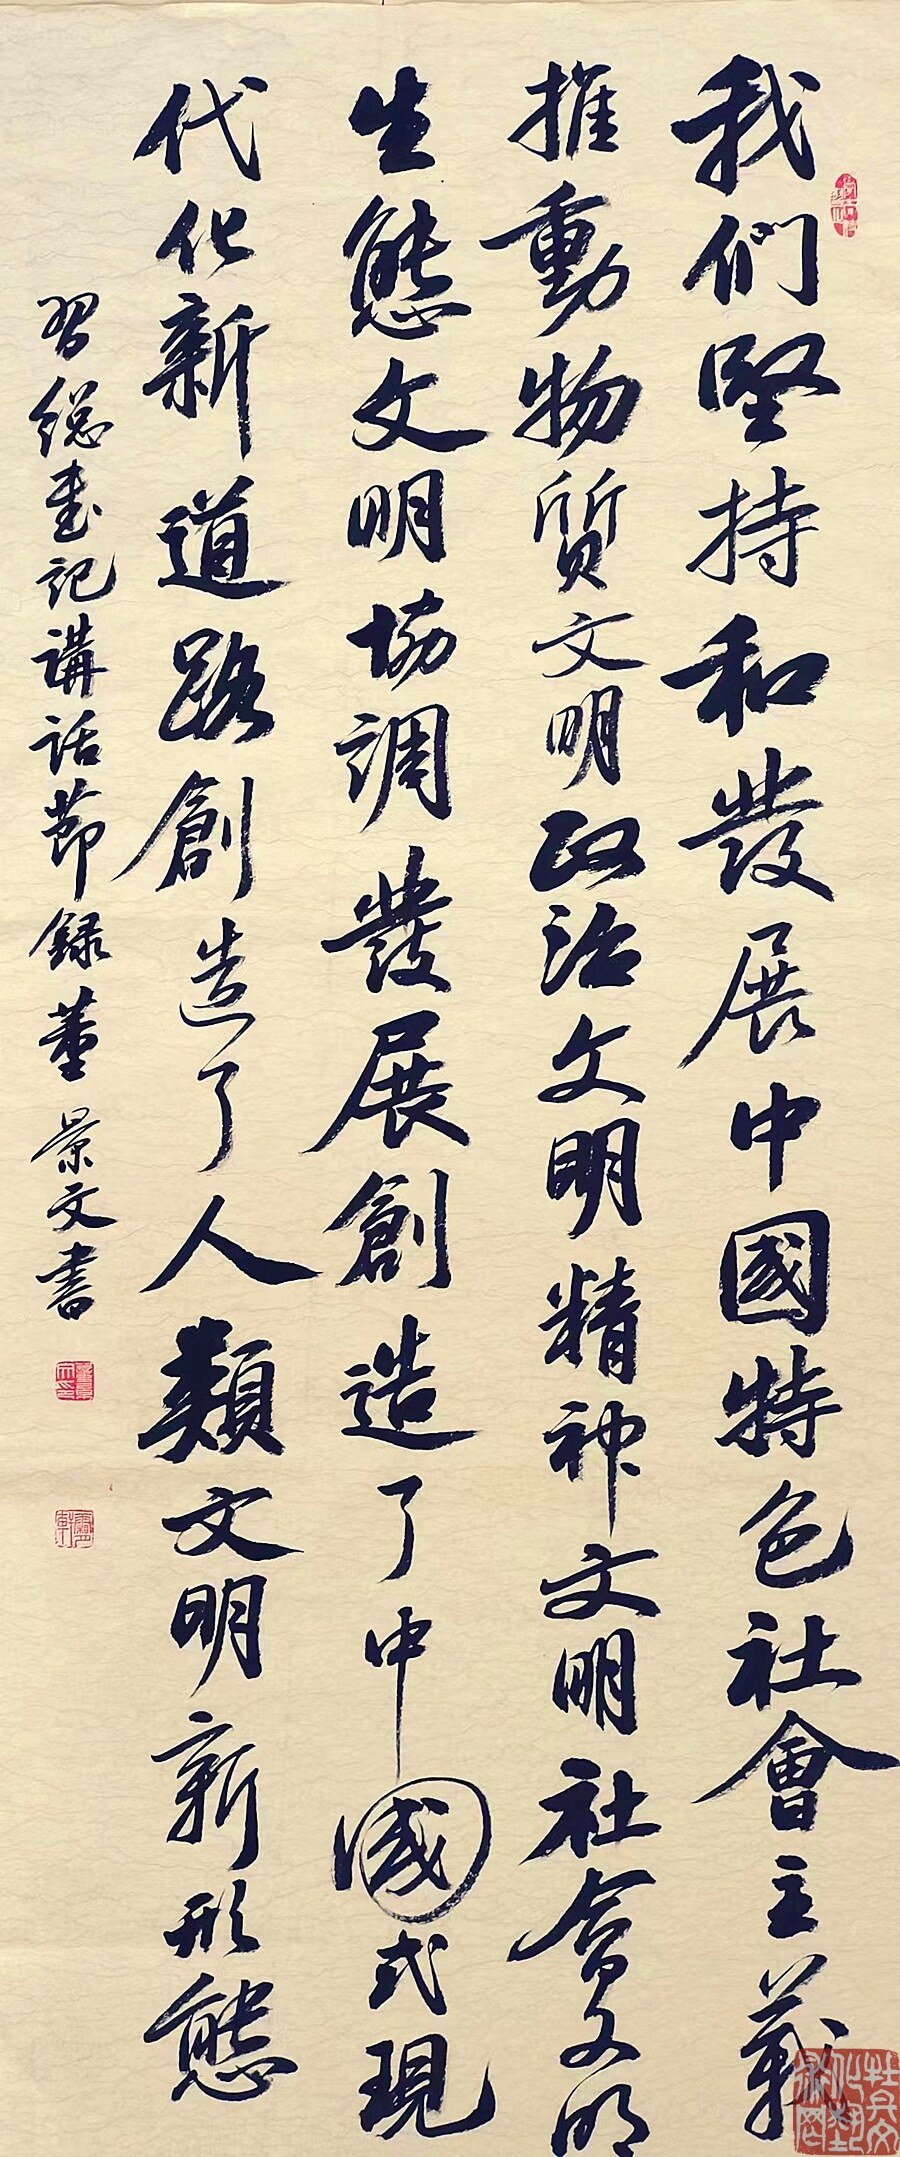 我們堅持和發展中國特色社會主義
推動物质文明政治文明精神文明社會文明
生態文明協調發展創造了中國式現
代化新道路創造了人類文明新形態
習総書記講話節録董景文書